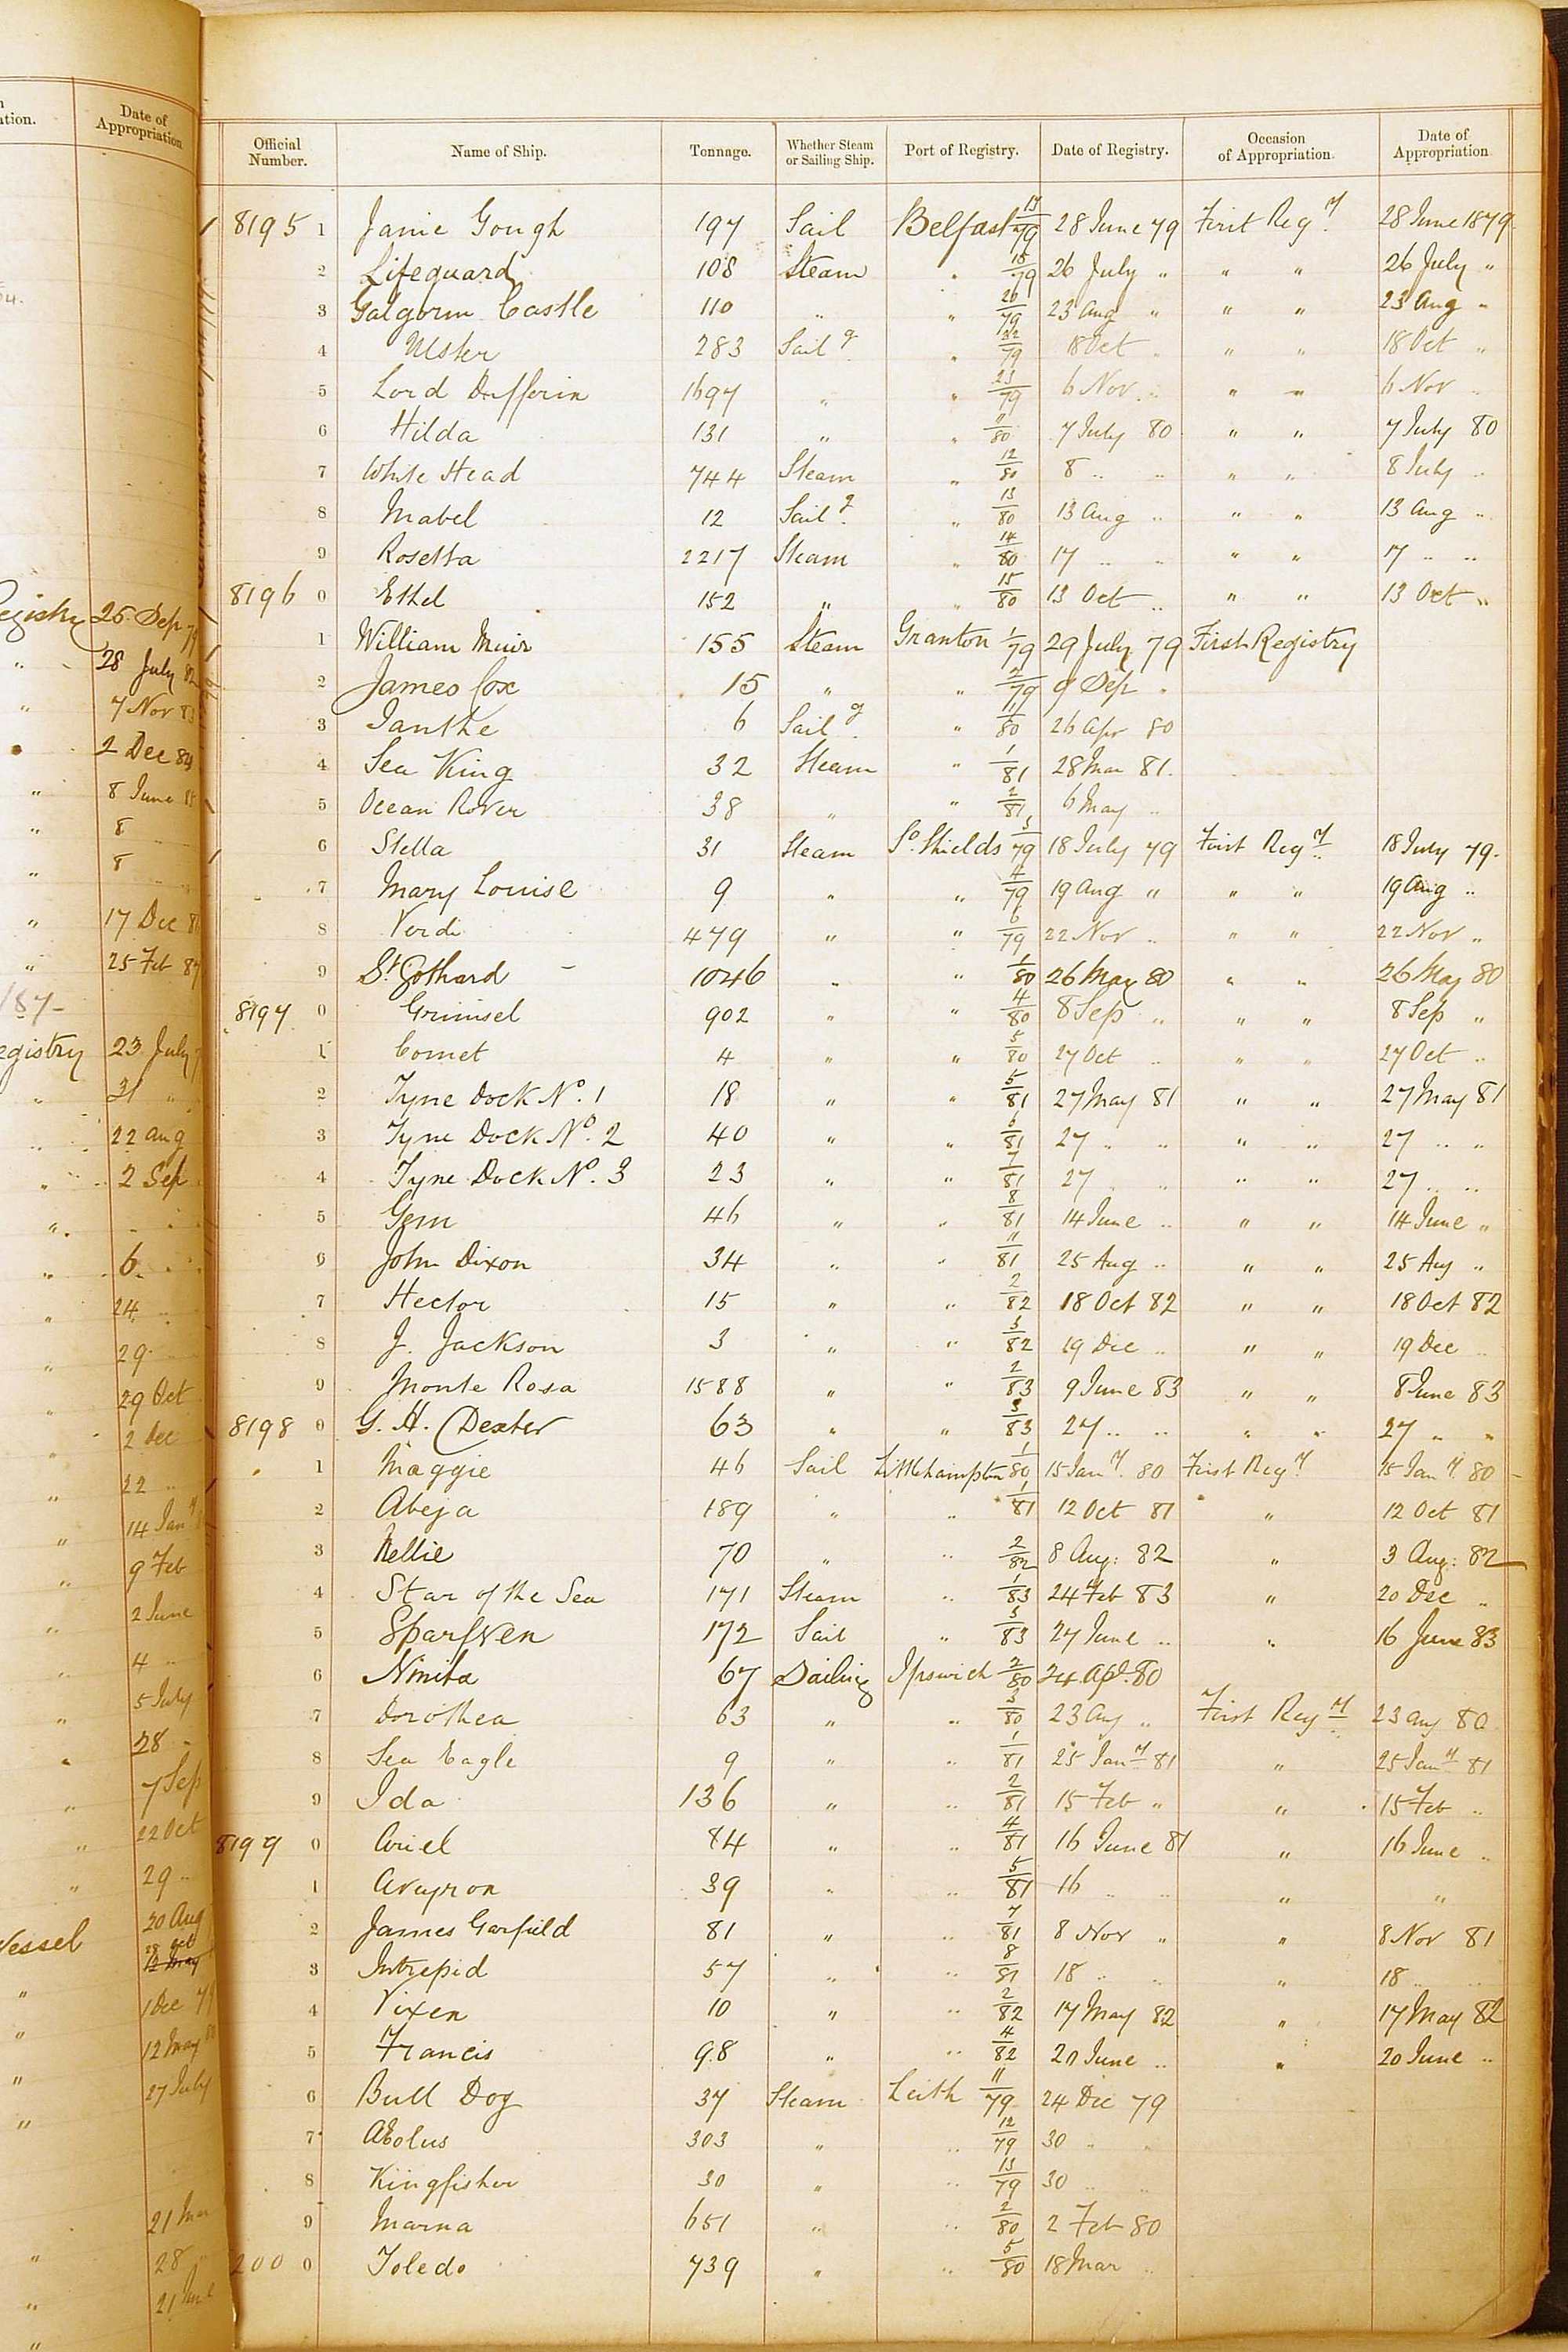 ation.
Date of Appropriation
egistry 25 Sep 79
" 28 July 82
" 7 Nov 83
2 Dec 84
" 8 June
" 8
" 8
" 17 Dec
" 25 Feb 87
187-
egistry 23 July
" 31 "
22 Aug
" 2 Sep
"
" 6
" 24
" 29
" 29 Oct
" 2 Dec
" 22
" 14 Jany
" 9 Feb
" 2 June
" 4
" 5 July
28
" 7 Sep
" 22 Oct
" 29
20 Aug
Vessel 28 Oct
12 May
" 1 Dec 79
" 12 May
" 27 July
"
21 Mar
" 28
" 21 June
"
Official Number. Name of Ship. Tonnage. Whether Steam or Sailing Ship. Port of Registry. Date of Registry. Occasion of Appropriation. Date of Appropriation
8195 1 Janie Gough 197 Sail Belfast 28 June 79 First Regy. 28 June 1879
2 Lifeguard 108 Steam " 15/79 26 July " " " 26 July "
3 Galgorm Castle 110 " " 20/79 23 Aug " " " 23 Aug "
4 Ulster 283 Sailg " 22/79 18 Oct " " " 18 Oct "
5 Lord Dufferin 1697 " " 23/79 6 Nov " " " 6 Nov "
6 Hilda 131 " " 11/80 7 July 80 " " 7 July 80
7 White Head 744 Steam " 12/80 8 " " " " 8 July "
8 Mabel 12 Sailg. " 13/80 13 Aug " " " 13 Aug "
9 Rosetta 2217 Steam " 14/80 17 " " " " 17 " "
8196 0 Ethel 152 " " 15/80 13 Oct " " " 13 Oct "
1 William Muir 155 Steam Granton 1/79 29 July 79 First Registry
2 James Cox 15 " " 2/79 9 Sep "
3 Ianthe 6 Sailg. " 1/80 26 Apr 80
4 Sea King 32 Steam " 1/81 28 Mar 81.
5 Ocean Rover 38 " " 2/81 6 May "
6 Stella 31 Steam So. Shields 3/79 18 July 79 First Regy 18 July 79.
7 Mary Louise 9 " " 4/79 19 Aug " " " 19 Aug "
8 Verdi 479 " " 6/79 22 Nov " " " 22 Nov "
9 St Gothard 1046 " " 1/80 26 May 80 " " 26 May 80
8197 0 Grimsel 902 " " 4/80 8 Sep " " " 8 Sep "
1 Comet 4 " " 5/80 27 Oct " " " 27 Oct "
2 Tyne Dock No. 1 18 " " 5/81 27 May 81 " " 27 May 81
3 Tyne Dock No. 2 40 " " 6/81 27 " " " " 27 " "
4 Tyne Dock No. 3 23 " " 7/81 27 " " " " 27 " "
5 Gem 46 " " 8/81 14 June " " " 14 June "
6 John Dixon 34 " " 11/81 25 Aug " " " 25 Aug "
7 Hector 15 " " 2/82 18 Oct 82 " " 18 Oct 82
8 J. Jackson 3 " " 3/82 19 Dec " " " 19 Dec "
9 Monte Rosa 1588 " " 2/83 9 June 83 " " 8 June 83
8198 0 G. H. Dexter 63 " " 3/83 27 " " " " 27 " "
1 Maggie 46 Sail Littlehampton 1/80 15 Jany. 80 First Regy. 15 Jany. 80
2 Abeja 189 " " 1/81 12 Oct 81 " 12 Oct 81
3 Nellie 70 " " 2/82 8 Aug: 82 " 3 Aug: 82
4 Star of the Sea 171 Steam " 1/83 24 Feb 83 " 20 Dec "
5 Sparfven 172 Sail " 3/83 27 June " " 16 June 83
6 Ninita 67 Sailing Ipswich 2/80 24 Apl. 80
7 Dorothea 63 " " 3/80 23 Aug " First Regy 23 Aug 80
8 Sea Eagle 9 " " 1/81 25 Jany 81 " 25 Jany 81
9 Ida 136 " " 2/81 15 Feb " " 15 Feb "
8199 0 Ariel 84 " " 4/81 16 June 81 " 16 June "
1 Aveyron 39 " " 5/81 16 " " " "
2 James Garfield 81 " " 7/81 8 Nov " " 8 Nov 81
3 Intrepid 57 " " 8/81 18 " " " 18 "
4 Vixen 10 " " 2/82 17 May 82 " 17 May 82
5 Francis 98 " " 4/82 20 June " " 20 June "
6 Bull Dog 37 Steam Leith 11/79 24 Dec 79
7 Æolus 303 " " 12/79 30 " "
8 Kingfisher 30 " " 13/79 30 " "
9 Marna 651 " " 2/80 2 Feb 80
200 0 Toledo 739 " " 5/80 18 Mar "